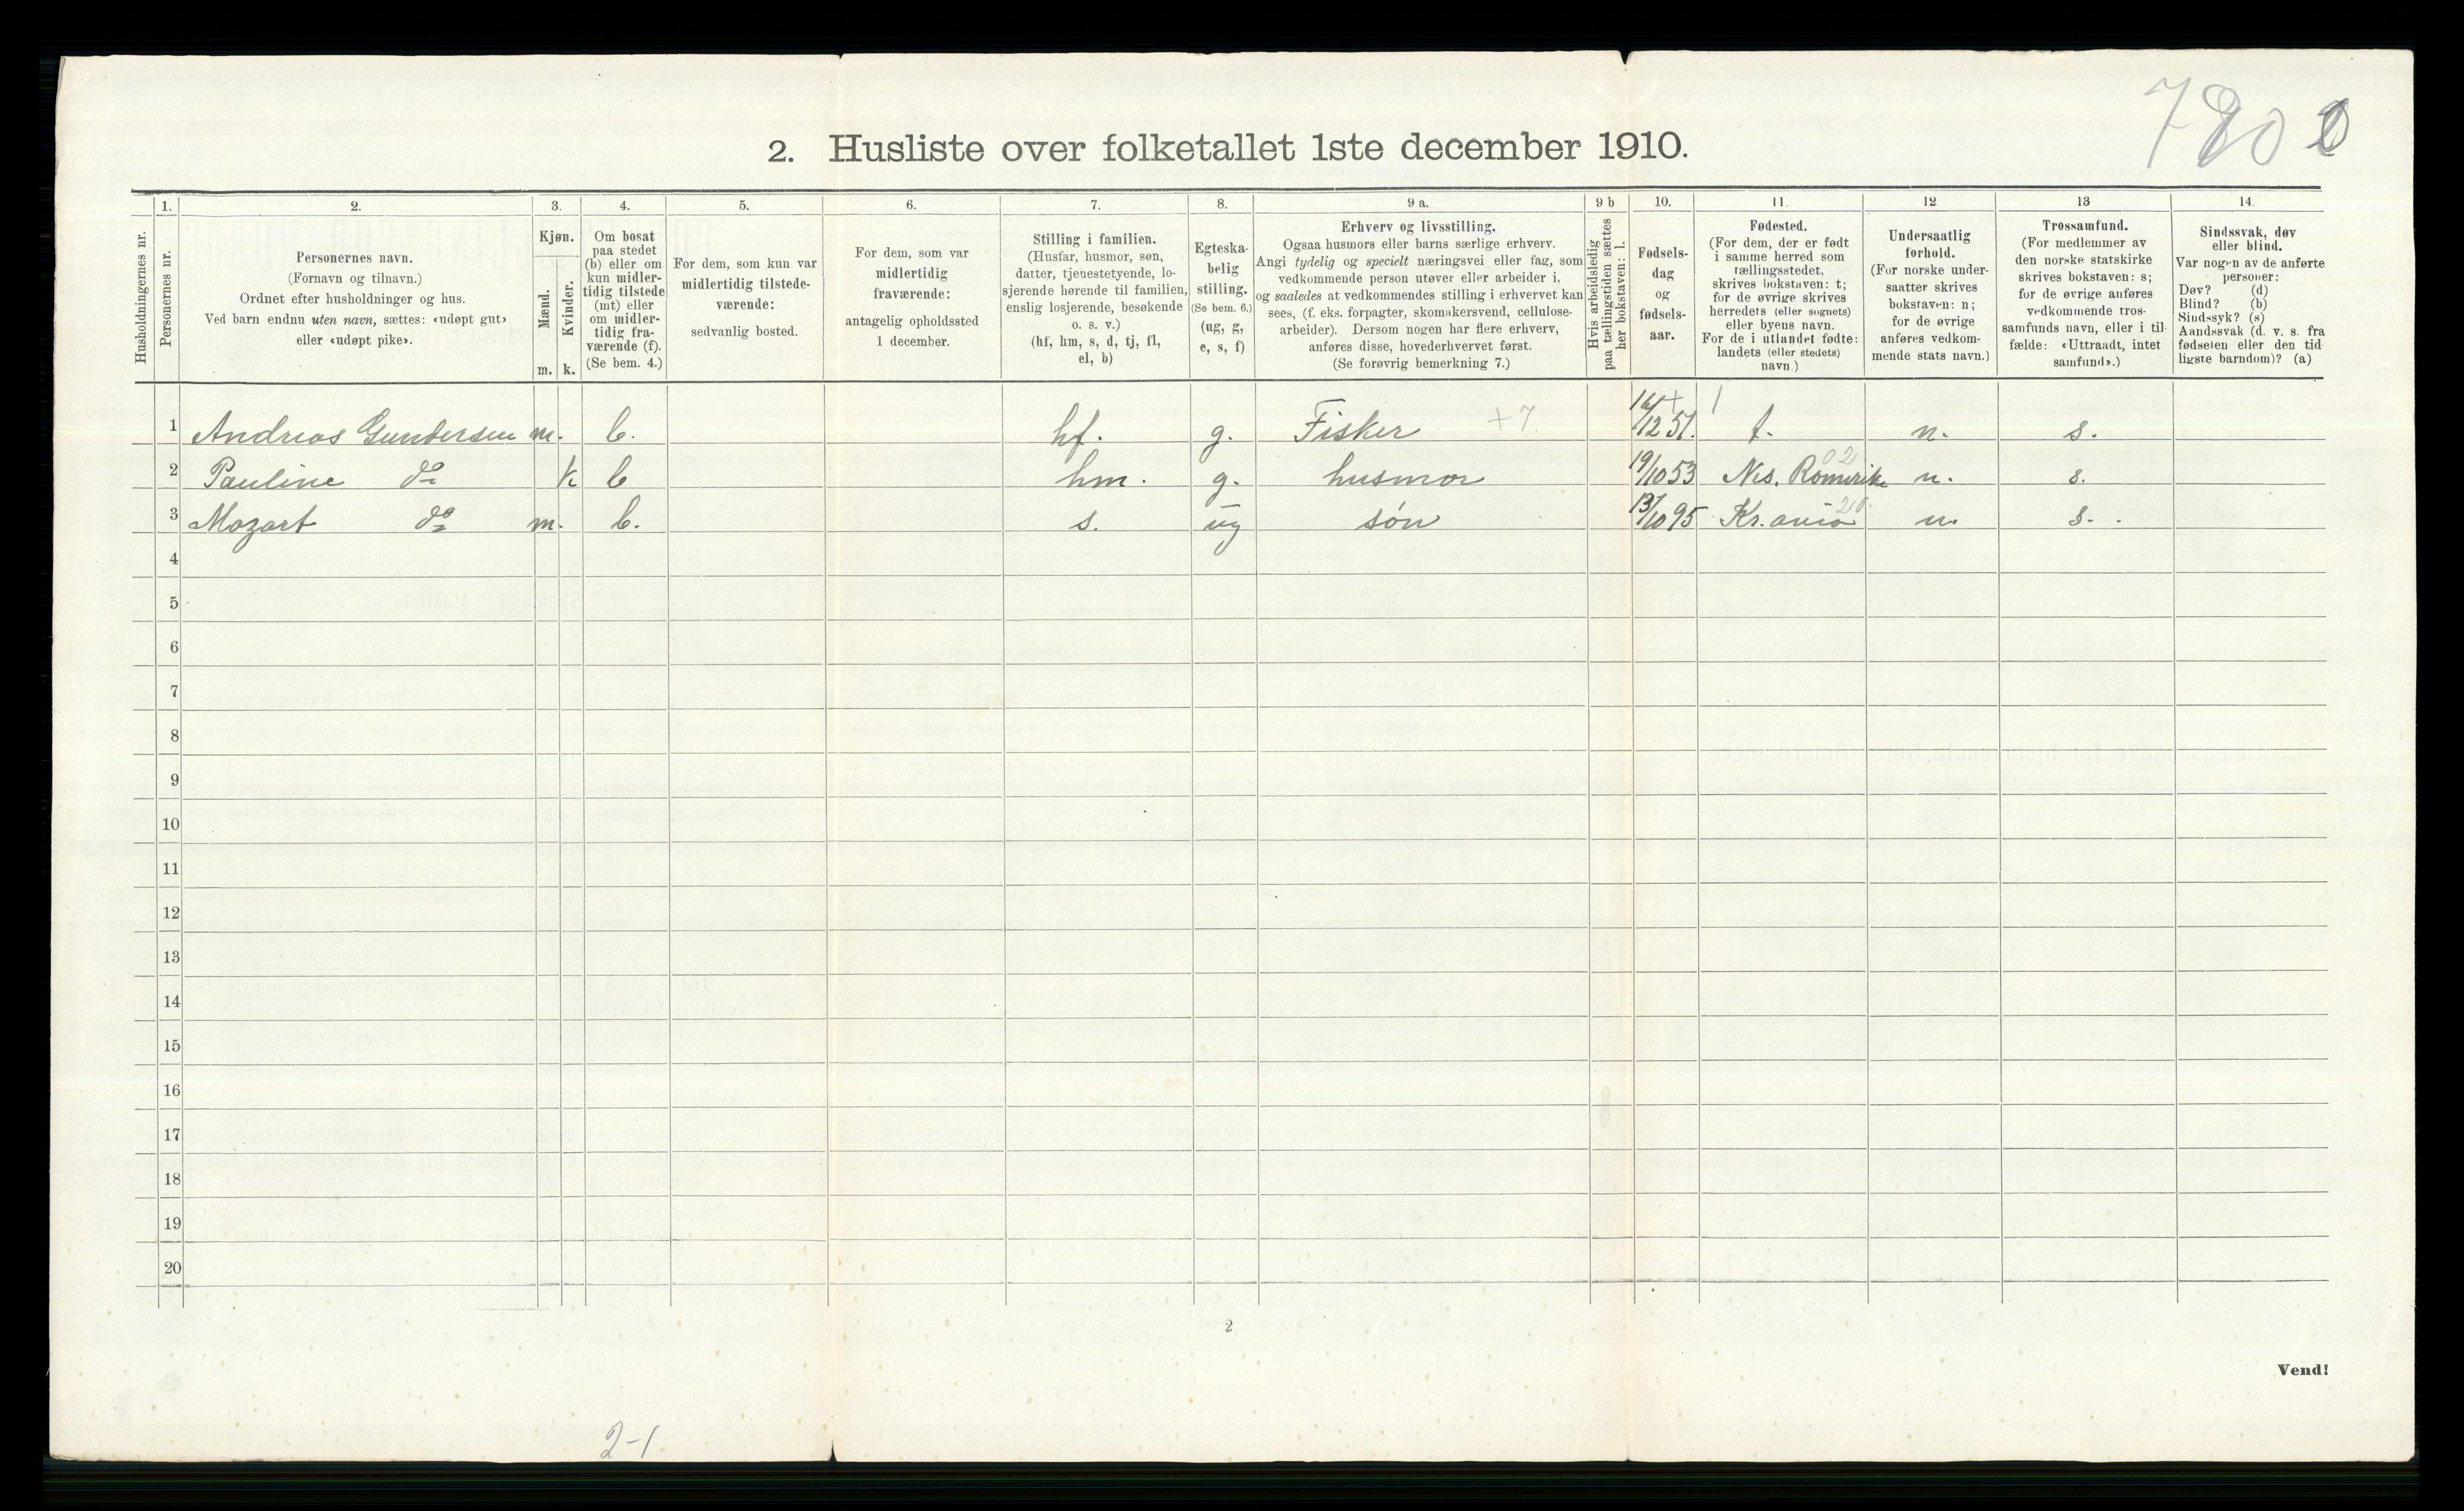 2. Husliste over folketallet 1ste december 1910.
1. 2. 3. 4. 5. 6. 7. 8. 9 a. 9 b 10. 11. 12 13 14.
Husholdningernes nr.
Personernes nr.
Personernes navn.
(Fornavn og tilnavn.)
Ordnet efter husholdninger og hus.
Ved barn endnu uten navn, sættes: «udøpt gut»
eller «udøpt pike».
Kjøn.
Mænd.
Kvinder.
m. k.
Om bosat
paa stedet
(b) eller om
kun midler-
tidig tilstede
(mt) eller
om midler-
tidig fra-
værende (f).
(Se bem. 4.)
For dem, som kun var
midlertidig tilstede-
værende:
sedvanlig bosted.
For dem, som var
midlertidig
fraværende:
antagelig opholdssted
1 december.
Stilling i familien.
(Husfar, husmor, søn,
datter, tjenestetyende, lo-
sjerende hørende til familien,
enslig losjerende, besøkende
o. s. v.)
(hf, hm, s, d, tj, fl,
el, b)
Egteska-
belig
stilling.
(Se bem. 6.)
(ug, g,
e, s, f)
Erhverv og livsstilling.
Ogsaa husmors eller barns særlige erhverv.
Angi tydelig og specielt næringsvei eller fag, som
vedkommende person utøver eller arbeider i,
og saaledes at vedkommendes stilling i erhvervet kan
sees, (f. eks. forpagter, skomakersvend, cellulose-
arbeider). Dersom nogen har flere erhverv,
anføres disse, hovederhvervet først.
(Se forøvrig bemerkning 7.)
Hvis arbeidsledig
paa tællingstiden sættes
her bokstaven: l.
Fødsels-
dag
og
fødsels-
aar.
Fødested.
(For dem, der er født
i samme herred som
tællingsstedet,
skrives bokstaven: t;
for de øvrige skrives
herredets (eller sognets)
eller byens navn.
For de i utlandet fødte:
landets (eller stedets)
navn.)
Undersaatlig
forhold.
(For norske under-
saatter skrives
bokstaven: n;
for de øvrige
anføres vedkom-
mende stats navn.)
Trossamfund.
(For medlemmer av
den norske statskirke
skrives bokstaven: s;
for de øvrige anføres
vedkommende tros-
samfunds navn, eller i til-
fælde: «Uttraadt, intet
samfund».)
Sindssvak, døv
eller blind.
Var nogen av de anførte
personer:
Døv? (d)
Blind? (b)
Sindssyk? (s)
Aandssvak (d. v. s. fra
fødselen eller den tid
ligste barndom)? (a)
1 Andreas Gundersen m. b. hf. g. Fisker +7 16/12 51. t. n. s.
2 Pauline do k b hm. g. husmor 19/10 53 Nes. Romerike 02 n. s.
3 Mozart do m. b. s. ug søn 13/10 95 Kr.ania 20 n. s.
4
5
6
7
8
9
10
11
12
13
14
15
16
17
18
19
20
2
Vend!
2-1